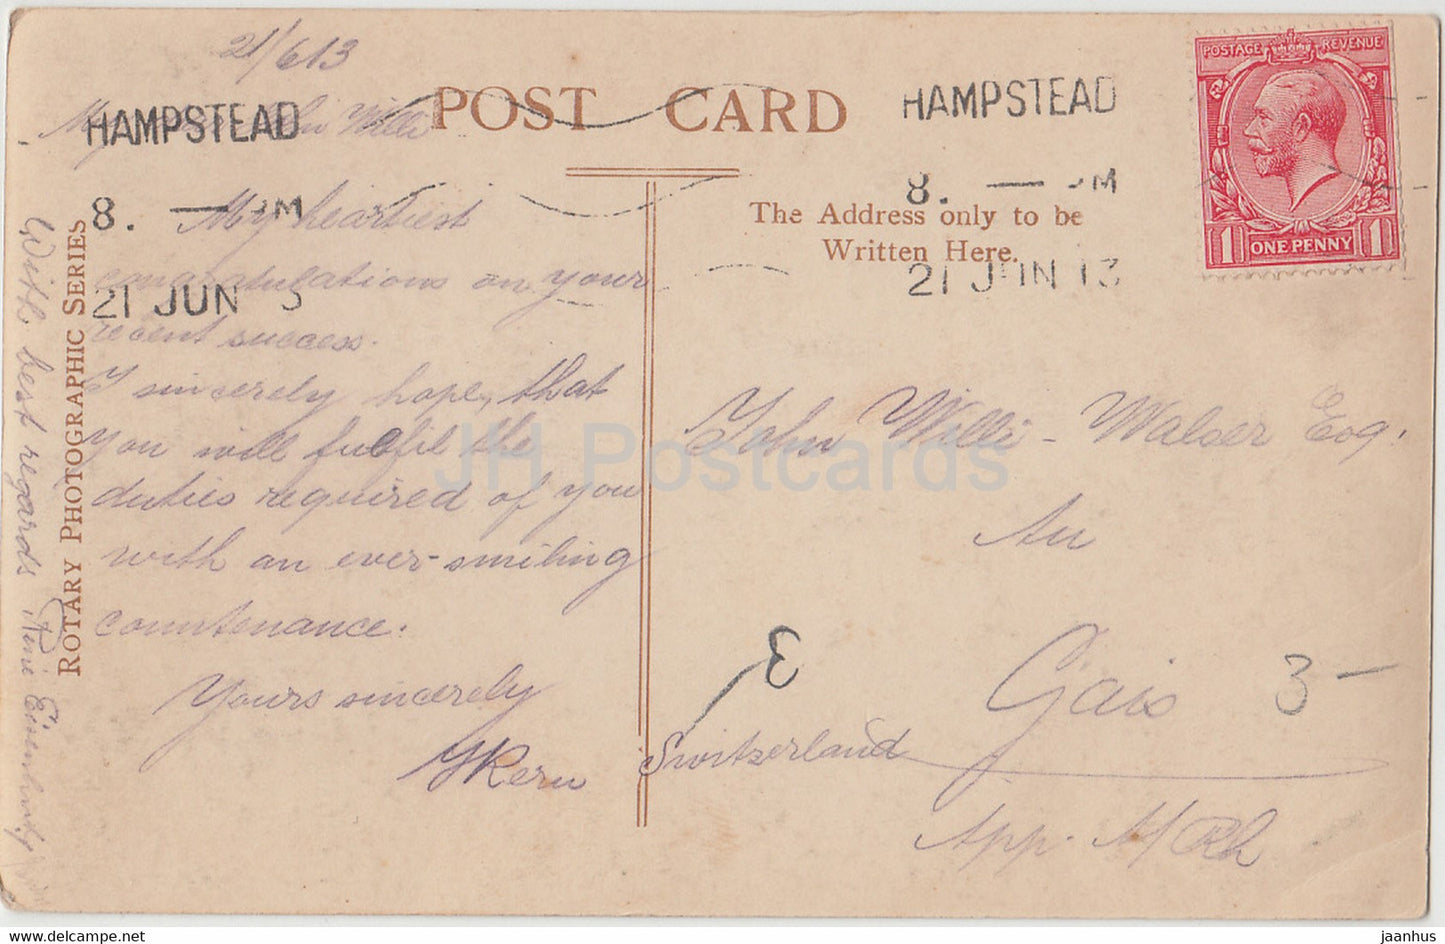 21/6 13
My John Willi
My heartiest
congratulations on your
recent success.
I sincerely hope, that
you will fulfil the
duties required of you
with an ever-smiling
countenance.
Yours sincerely
Kern
With best regards
ROTARY PHOTOGRAPHIC SERIES
POST CARD
The Address only to be
Written Here.
HAMPSTEAD
8. — PM
21 JUN 3
HAMPSTEAD
8. — PM
21 JUN 13
POSTAGE REVENUE
1 ONE PENNY 1
John Willi-Walser Esq.
Au
Gais
Switzerland
App. A/Rh
E
3 -
JH Postcards
jaanhus.com